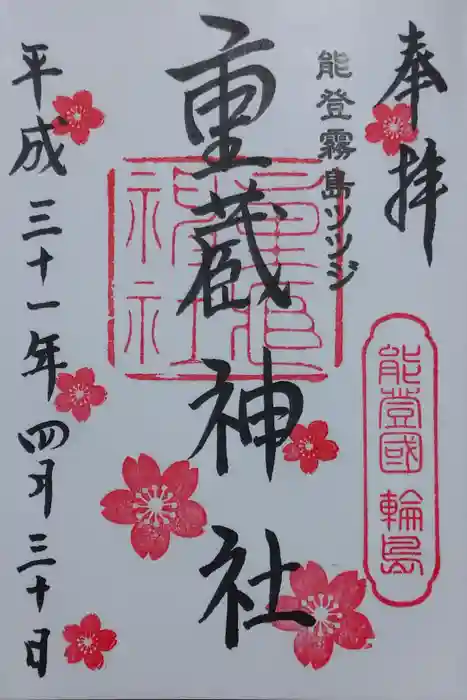 奉拝
能登國 輪島
能登霧島ツツジ
重蔵神社
重蔵神社
平成三十一年四月三十日